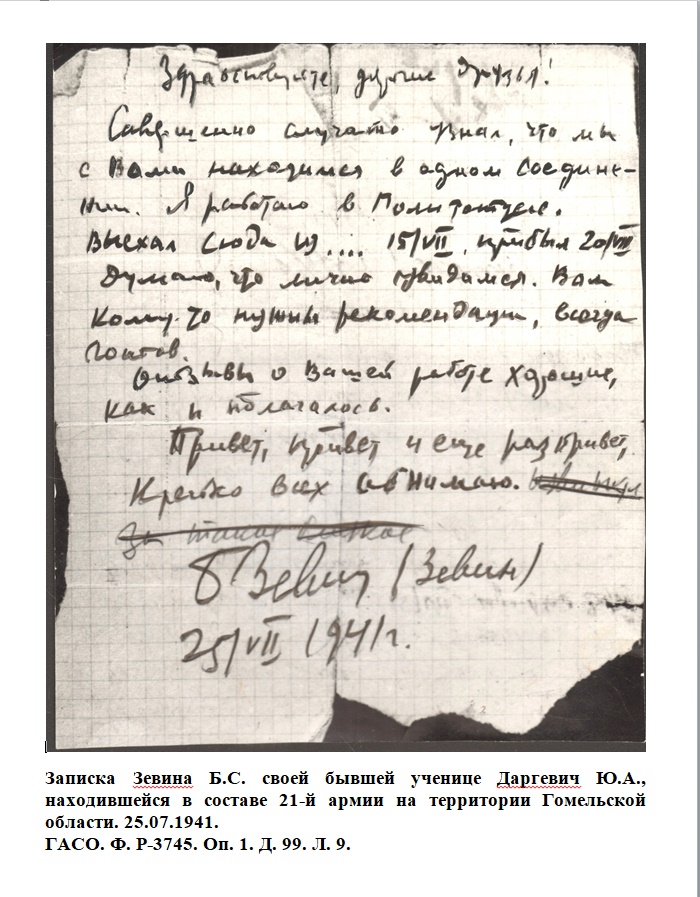 Здравствуйте, дорогие друзья!
Совершенно случайно узнал, что мы
с Вами находимся в одном соедине-
нии. Я работаю в Политотделе.
Выехал сюда из .... 15/VII, прибыл 20/VII
Думаю, что лично увидимся. Вам
кому-то нужны рекомендации, всегда
готов.
Отзывы о Вашей работе хорошие,
как и полагалось.
Привет, привет и еще раз привет,
Крепко всех обнимаю.
За такое
БЗевин (Зевин)
25/VII 1941г.
Записка Зевина Б.С. своей бывшей ученице Даргевич Ю.А.,
находившейся в составе 21-й армии на территории Гомельской
области. 25.07.1941.
ГАСО. Ф. Р-3745. Оп. 1. Д. 99. Л. 9.